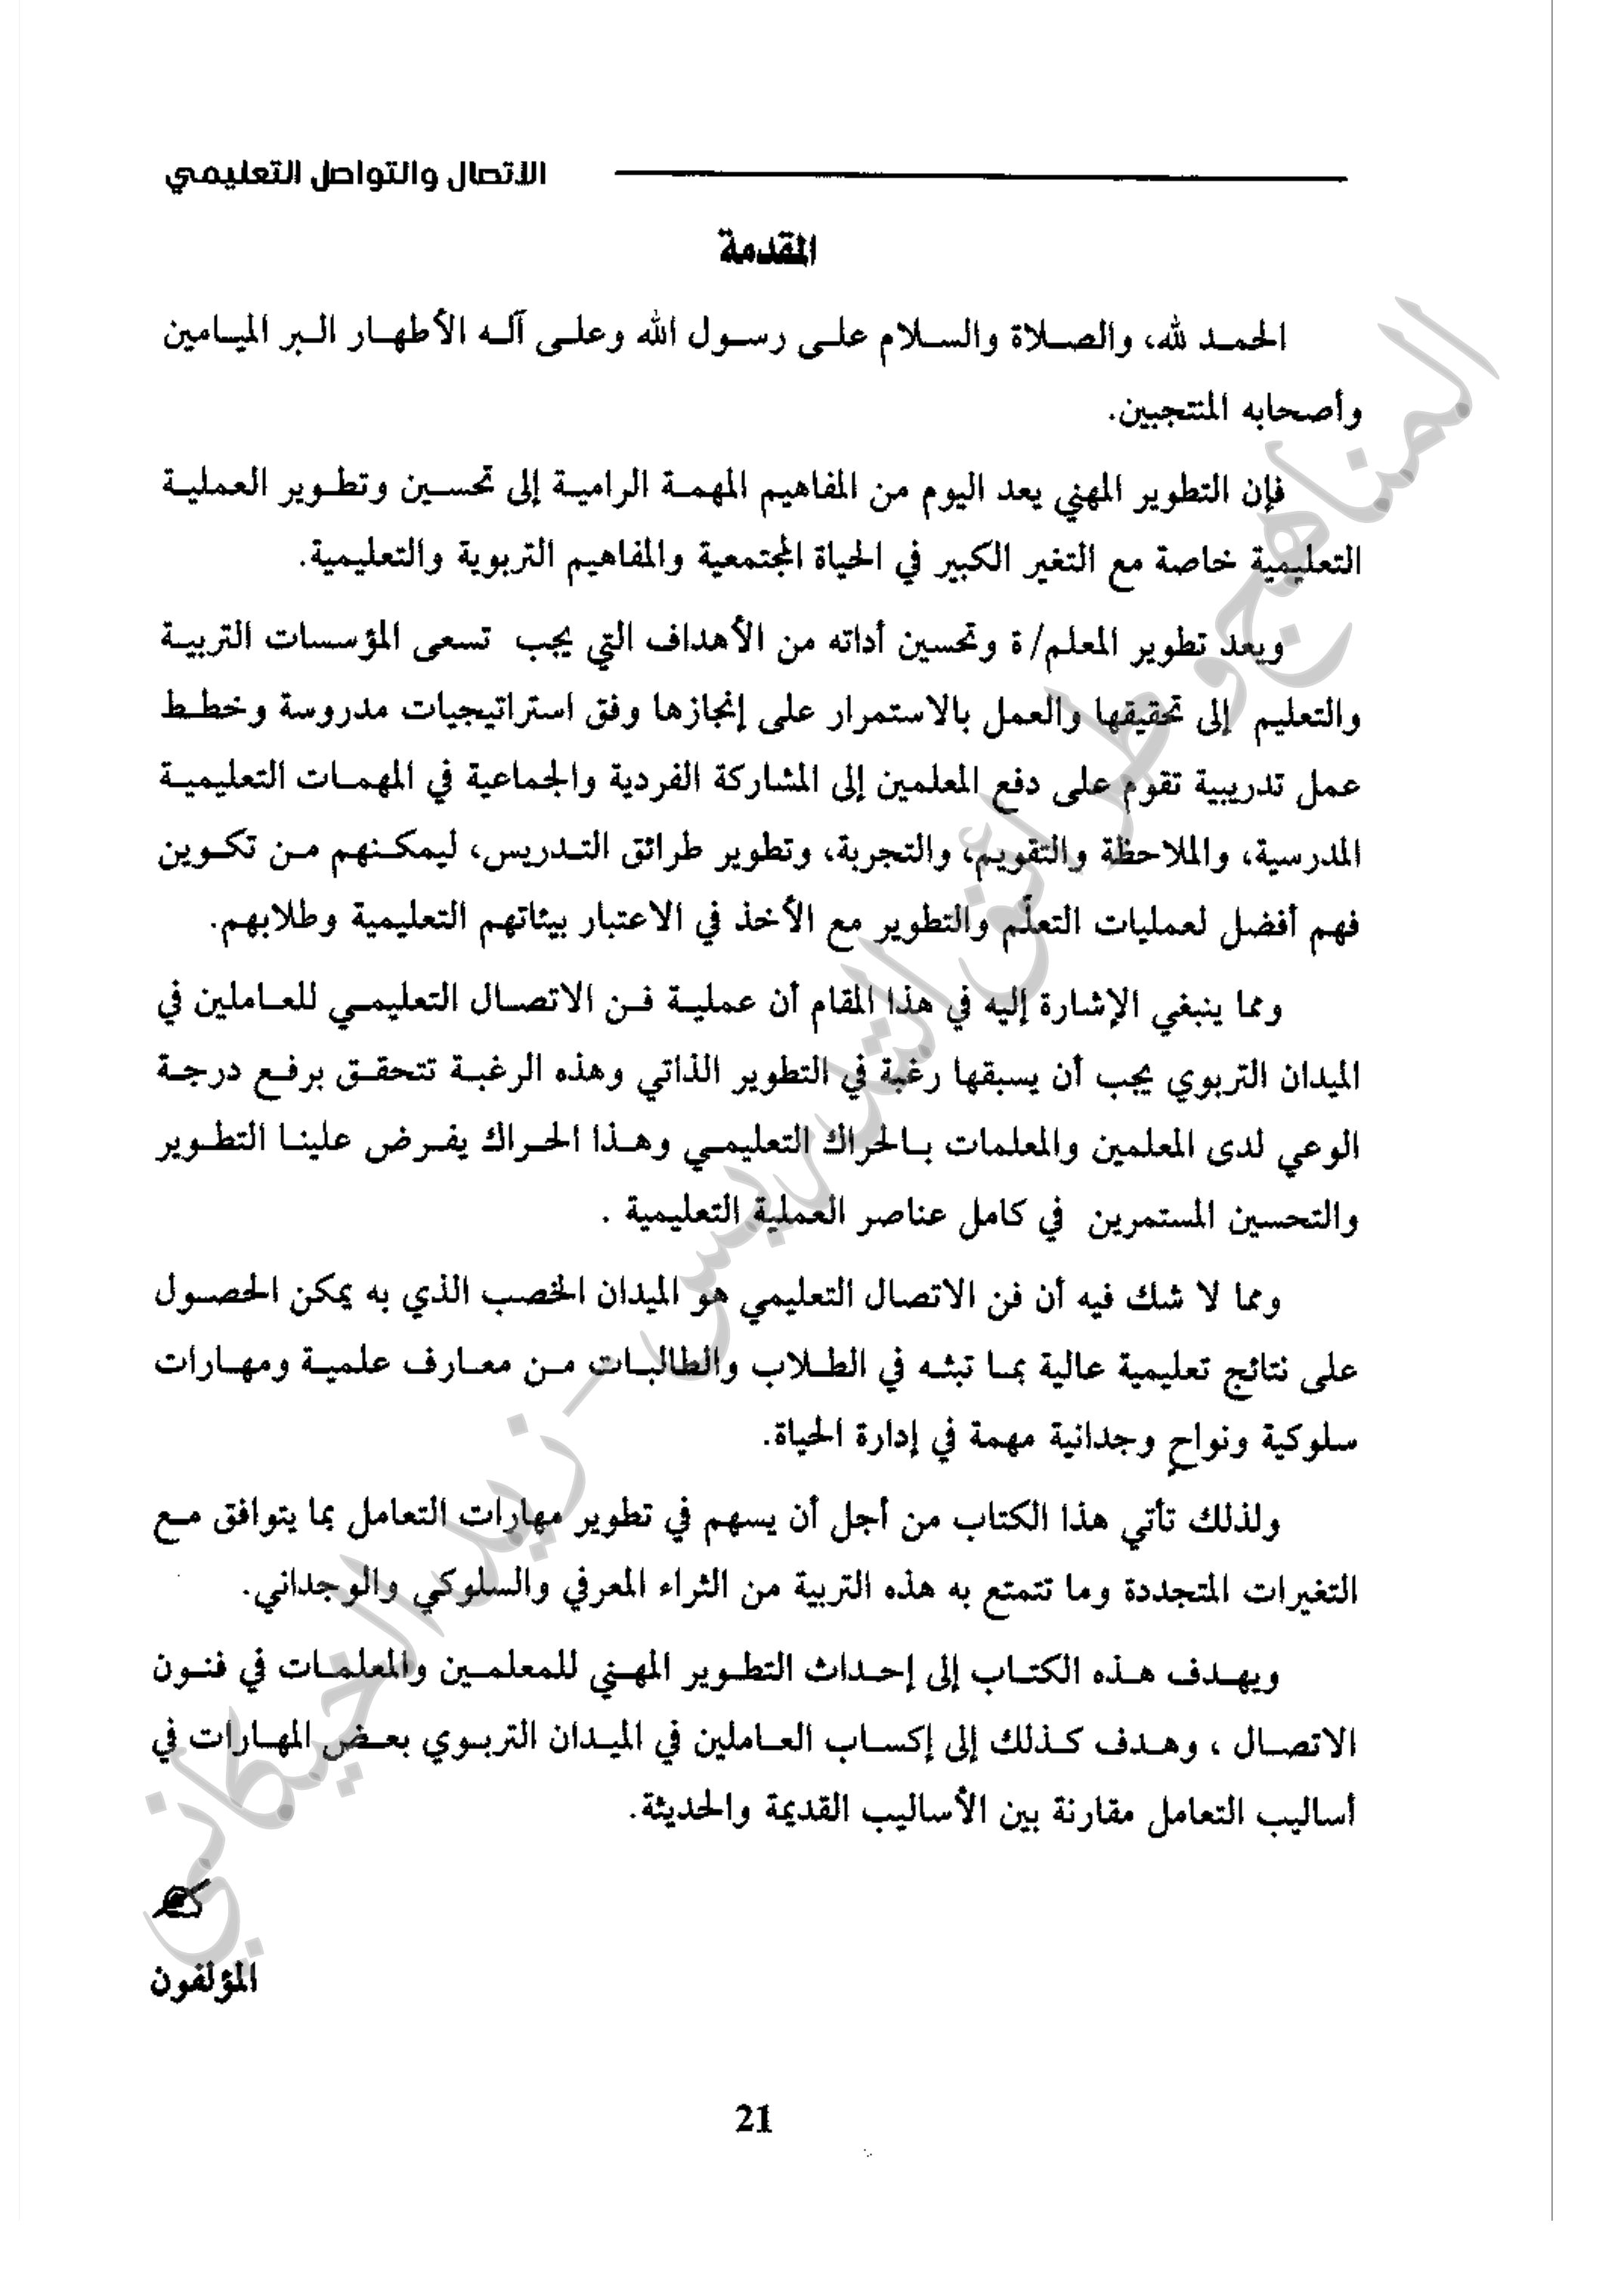 الاتصال والتواصل التعليمي
المقدمة
الحمد لله، والصلاة والسلام على رسول الله وعلى آله الأطهار البر الميامين
وأصحابه المنتجبين.
فإن التطوير المهني يعد اليوم من المفاهيم المهمة الرامية إلى تحسين وتطوير العملية
التعليمية خاصة مع التغير الكبير في الحياة المجتمعية والمفاهيم التربوية والتعليمية.
ويعد تطوير المعلم/ة وتحسين أداته من الأهداف التي يجب تسعى المؤسسات التربية
والتعليم إلى تحقيقها والعمل بالاستمرار على إنجازها وفق استراتيجيات مدروسة وخطط
عمل تدريبية تقوم على دفع المعلمين إلى المشاركة الفردية والجماعية في المهمات التعليمية
المدرسية، والملاحظة والتقويم، والتجربة، وتطوير طرائق التدريس، ليمكنهم من تكوين
فهم أفضل لعمليات التعلّم والتطوير مع الأخذ في الاعتبار بيئاتهم التعليمية وطلابهم.
ومما ينبغي الإشارة إليه في هذا المقام أن عملية فن الاتصال التعليمي للعاملين في
الميدان التربوي يجب أن يسبقها رغبة في التطوير الذاتي وهذه الرغبة تتحقق برفع درجة
الوعي لدى المعلمين والمعلمات بالحراك التعليمي وهذا الحراك يفرض علينا التطوير
والتحسين المستمرين في كامل عناصر العملية التعليمية .
ومما لا شك فيه أن فن الاتصال التعليمي هو الميدان الخصب الذي به يمكن الحصول
على نتائج تعليمية عالية بما تبثه في الطلاب والطالبات من معارف علمية ومهارات
سلوكية ونواحٍ وجدانية مهمة في إدارة الحياة.
ولذلك تأتي هذا الكتاب من أجل أن يسهم في تطوير مهارات التعامل بما يتوافق مع
التغيرات المتجددة وما تتمتع به هذه التربية من الثراء المعرفي والسلوكي والوجداني.
ويهدف هذه الكتاب إلى إحداث التطوير المهني للمعلمين والمعلمات في فنون
الاتصال ، وهدف كذلك إلى إكساب العاملين في الميدان التربوي بعض المهارات في
أساليب التعامل مقارنة بين الأساليب القديمة والحديثة.
المؤلفون
21
المناهج وطرائق التدريس - زيد الخيكاني